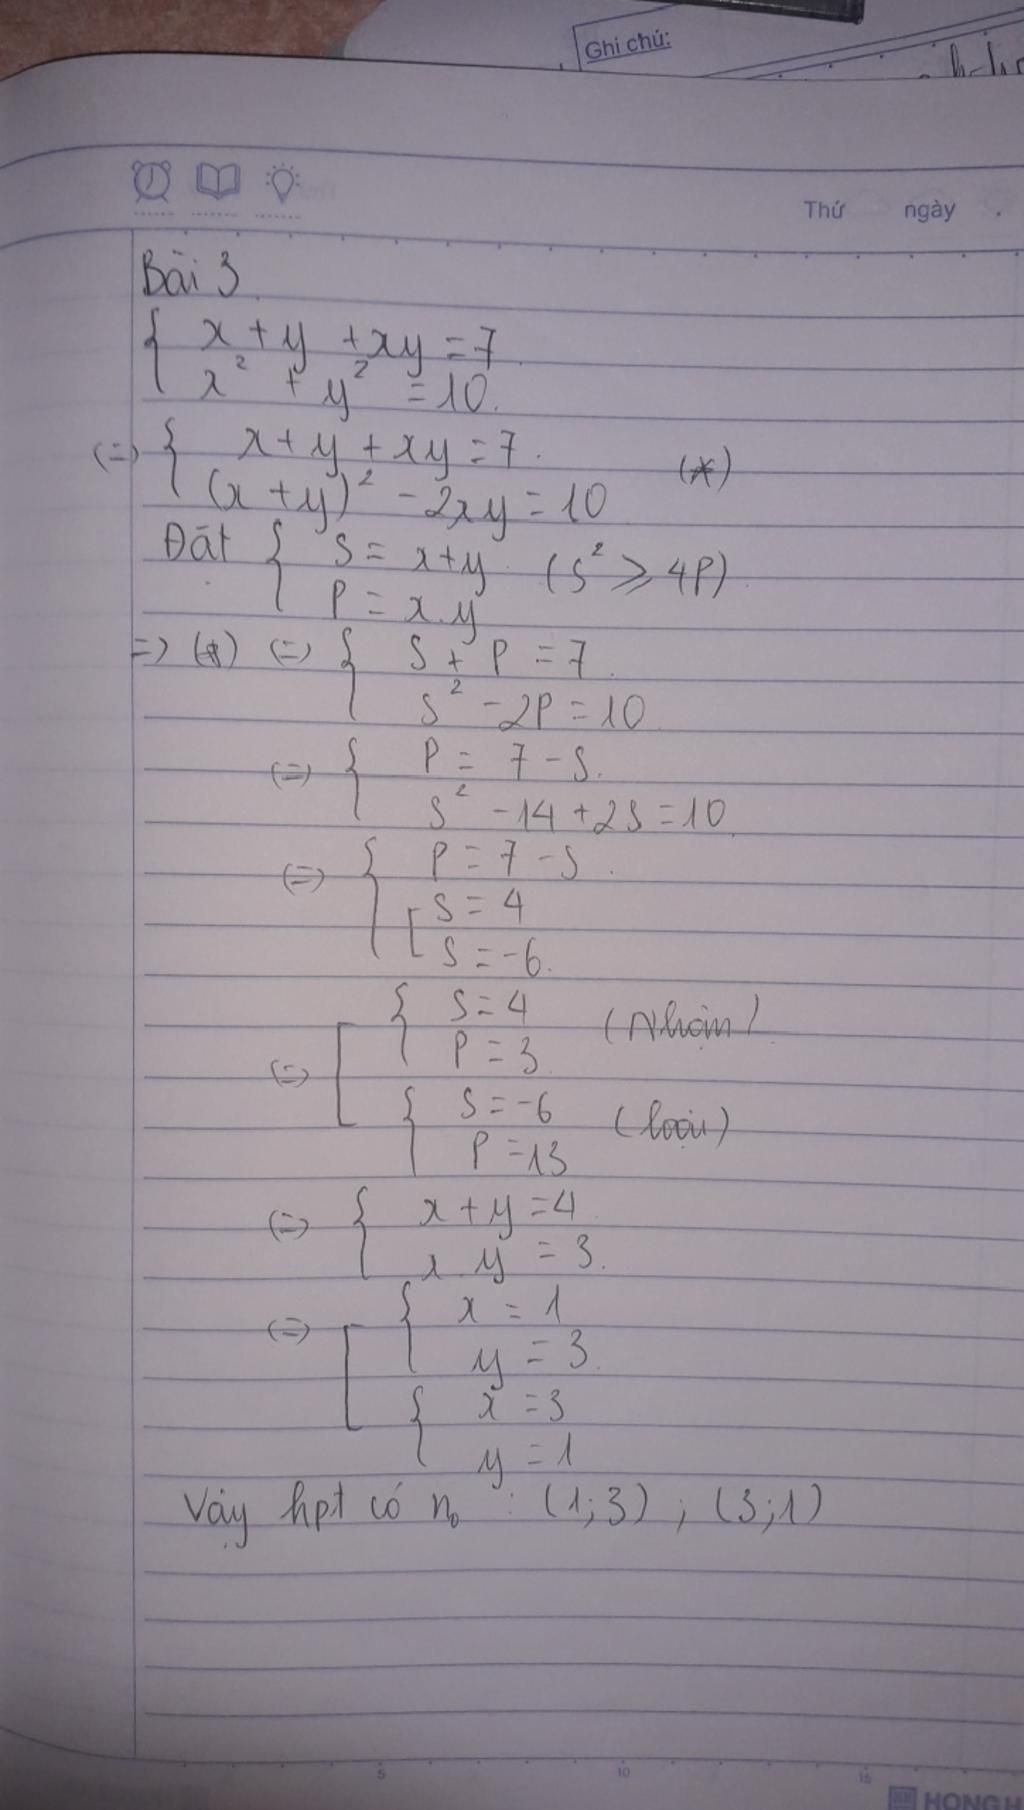 Ghi chú:
Thứ ngày
Bài 3
{ x + y + xy = 7
x² + y² = 10.
(=) { x + y + xy = 7. (*)
(x + y)² - 2xy = 10
Đặt { S = x + y (S² ⩾ 4P)
P = x.y
=> (*) (=) { S + P = 7
S² - 2P = 10
(=) { P = 7 - S.
S² - 14 + 2S = 10
(=) { P = 7 - S.
[ S = 4
S = -6.
(=) [ { S = 4 (Nhận)
P = 3
{ S = -6 (loại)
P = 13
(=) { x + y = 4
x y = 3.
(=) [ { x = 1
y = 3.
{ x = 3
y = 1
Vậy hpt có n₀ : (1;3) ; (3;1)
5 10 15
HONG H